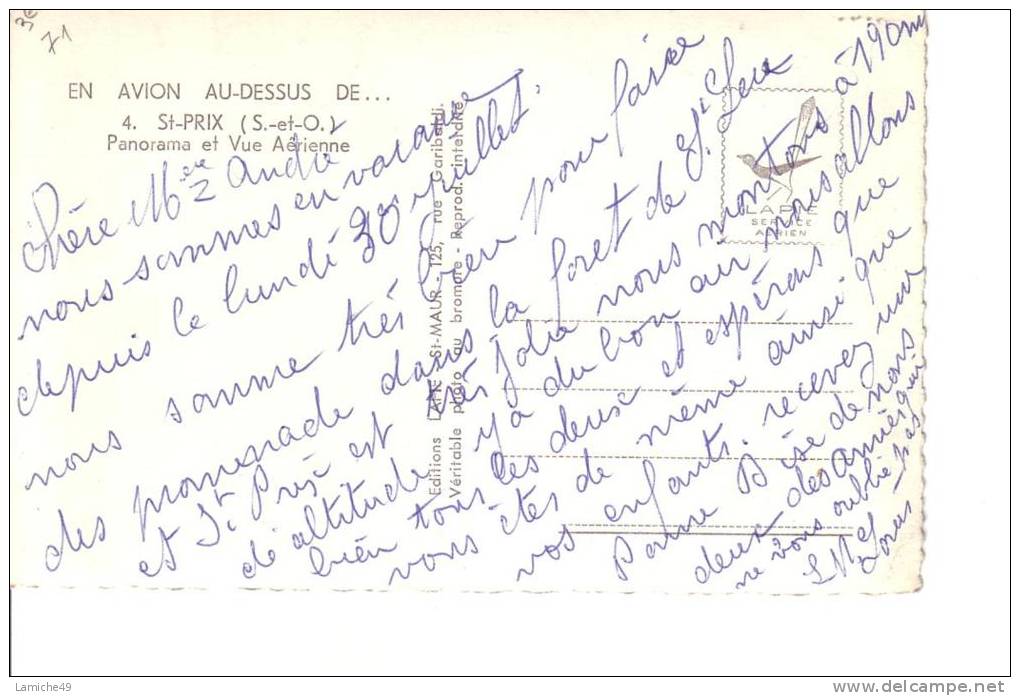 3€
71
EN AVION AU-DESSUS DE...
4. St-PRIX (S.-et-O.)
Panorama et Vue Aérienne
Chère Mère André
nous sommes en vacance
depuis le lundi 30 Juillet.
nous somme très bien pour faire
des promenade dans la foret de St Leu
et St Prié est très jolie nous montons à 190m
de altitude y a du bon air nous allons
bien tous les deux et espérons que
vous êtes de même ainsi que
vos enfants. recevez une
Bonne Bise de nous
deux des amies qui
ne vous oublie pas
Editions LAPIE St-MAUR - 125, rue Garibaldi.
Véritable photo au bromure - Reprod. interdite
LAPIE
SERVICE
AERIEN
Lamiche49
www.delcampe.net